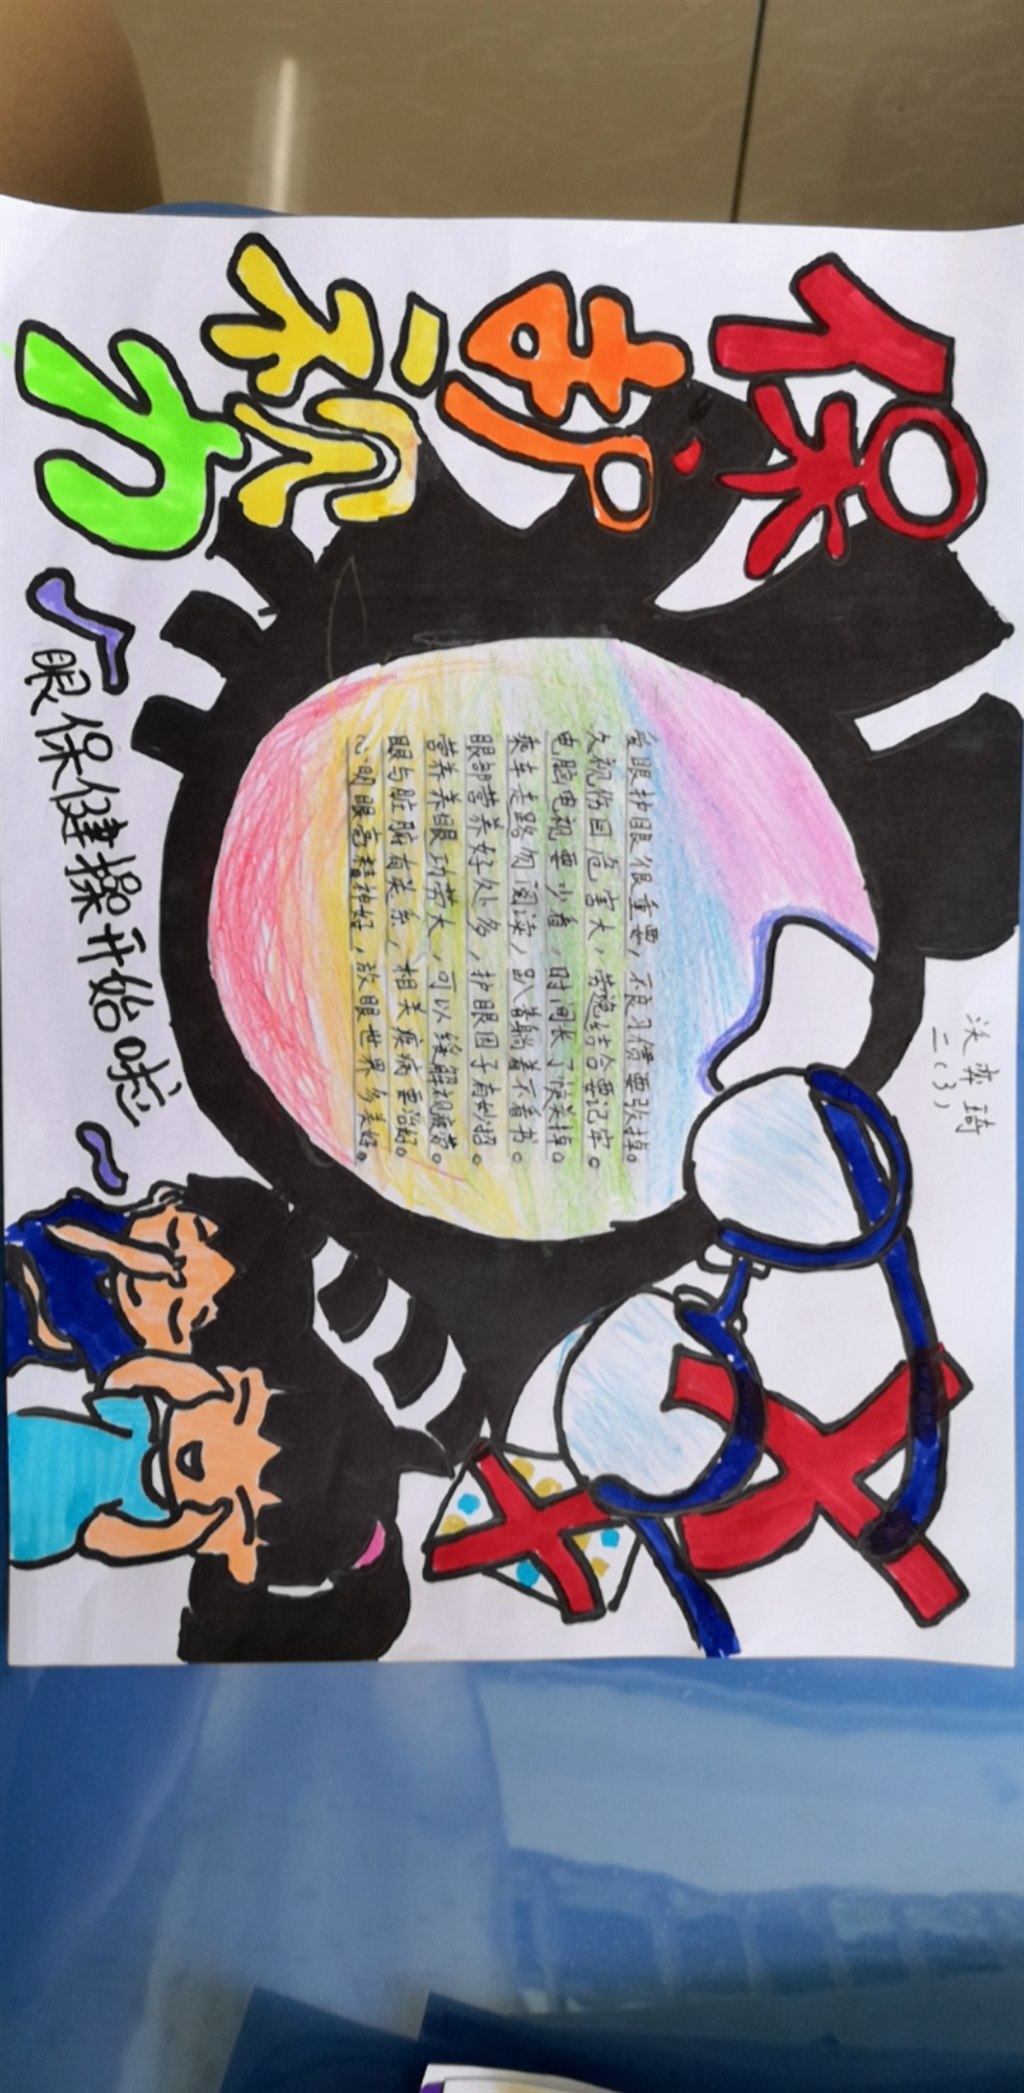 保护视力
沃弈琦
二(3)
爱眼护眼很重要，不良习惯要改掉。
久视伤目危害大，劳逸结合要记牢。
电脑电视要少看，时间长了
乘车走路勿阅读，趴着躺着不看书。
眼部营养好处多，护眼因子有妙招。
营养养眼功劳大，可以缓解视疲劳。
眼与脏腑有关系，相关疾病要治好。
心明眼亮精神好，放眼世界多美好。
眼保健操开始啦